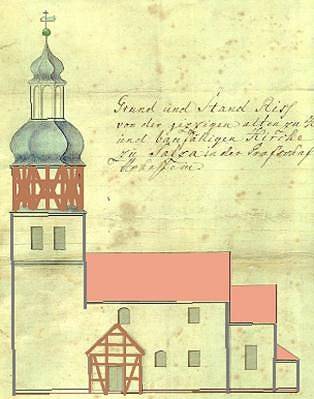 Grund und Stand Riss
von der jezzigen alten zu
und baufälligen Kirche
zu Salza in der Grafschaf
Hohnstein.